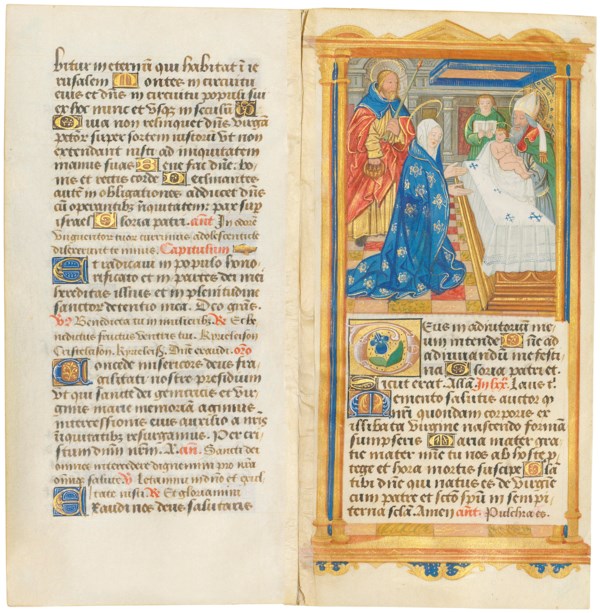 bitur in eternū qui habitat ī ie
rusalem Montes in circuitu
eius et dn̄s in circuitu populi sui
ex hoc nunc et vsqꝫ in seculū
Quia non relinquet dn̄s virgā
petōꝝ super sortem iustorū vt non
extendant iusti ad iniquitatem
manus suas Bene fac dn̄e bo
nis et rectis corde Declinantes
autē in obligationes adducet dn̄s
cū operantibꝰ īniquitatem: pax sup
israel Gloria patri. ant̄ In odorē
vnguentoꝝ tuoꝝ currimus adolescentule
dilexerunt te nimis. Capitulum
Et radicaui in populo hono
rificato et in partes dei mei
hereditas illius et in plenitudine
sanctoꝝ detentio mea. Deo grās.
Benedicta tu in mulieribꝰ. Et be
nedictus fructus ventris tui. Kyrieleison
Cristeleison. Kyrieleisō. Dn̄e exaudi. oro
Concede misericors deus fra
gilitati nostre presidium
vt qui sancte dei genitricis et vir
ginis marie memoriā agimus
intercessionis eius auxilio a nr̄is
īniquitatibꝰ resurgamus. Per cri
stum dn̄m nr̄m. Sancti dei
omnes intercedere dignemini pro nr̄a
oīmqꝫ salute. Letamini in dn̄o et exul
tate iusti Et gloriamini
Exaudi nos deus salutaris
Deus in adiutorium me
um intende Dn̄e ad
adiuuandū me festi
na Gloria patri et
Sicut erat. Alla.
Memento salutis auctor ꝙ
nr̄i quondam corporis ex
illibata virgine nascendo formam
sumpseris Maria mater gra
tie mater mīe tu nos ab hoste p
tege et hora mortis suscipe Glā
tibi dn̄e qui natus es de virgie
cum patre et sctō spū in sempi
terna sclā. Amen ant̄. Pulchra es.